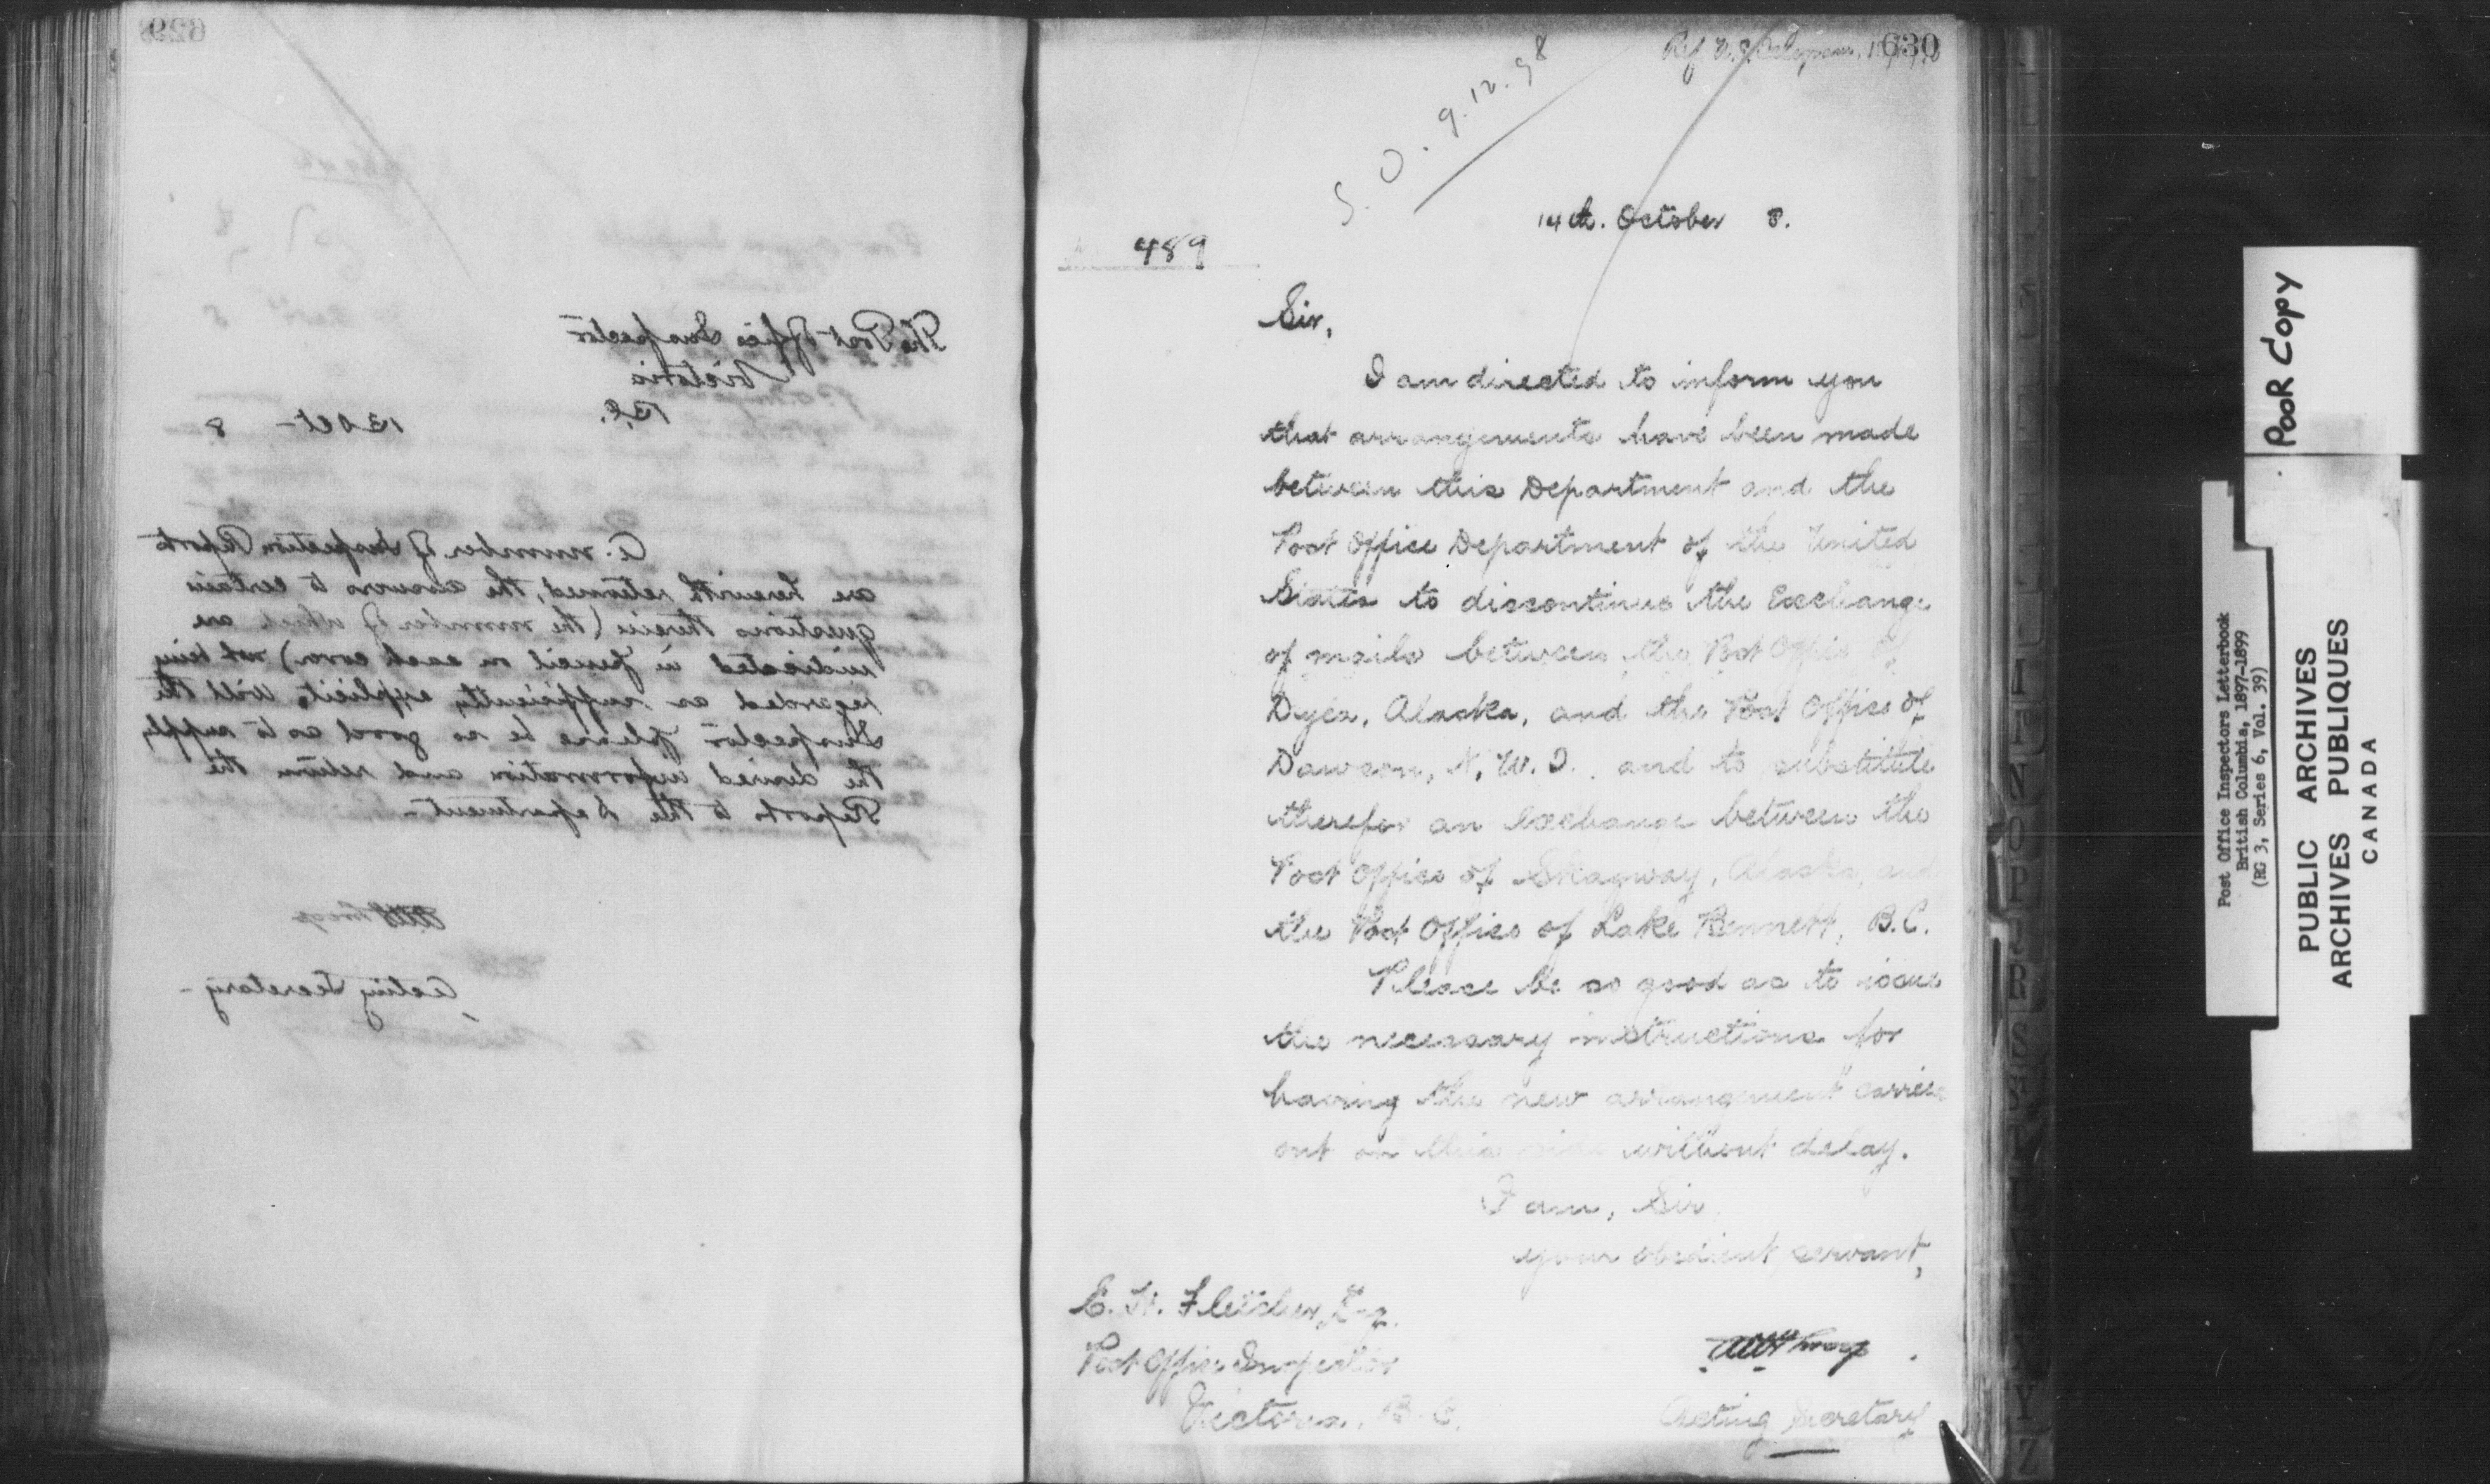 629
The Post Office Inspector
Victoria
B.C.
13 Oct - 8
A number of Inspection Reports
are herewith returned, the answers to certain
questions therein (the number of which are
indicated in pencil on each cover) not being
regarded as sufficiently explicit, will the
Inspector please be so good as to supply
the desired information and return the
Reports to the Department -
Acting Secretary -
630
S. O. 9.12.98
14th. October 8.
489
Sir,
I am directed to inform you
that arrangements have been made
between this Department and the
Post Office Department of the United
States to discontinue the Exchange
of mails between the Post Office of
Dyea, Alaska, and the Post Office of
Dawson, N. W. T. and to substitute
therefor an Exchange between the
Post Office of Skagway, Alaska, and
the Post Office of Lake Bennett, B.C.
Please be so good as to issue
the necessary instructions for
having the new arrangement carried
out on this side without delay.
I am, Sir
your obedient servant,
E. H. Fletcher, Esq.
Post Office Inspector
Victoria, B. C.
Acting Secretary
POOR COPY
Post Office Inspectors Letterbook
British Columbia, 1897-1899
(RG 3, Series 6, Vol. 39)
PUBLIC ARCHIVES
ARCHIVES PUBLIQUES
CANADA